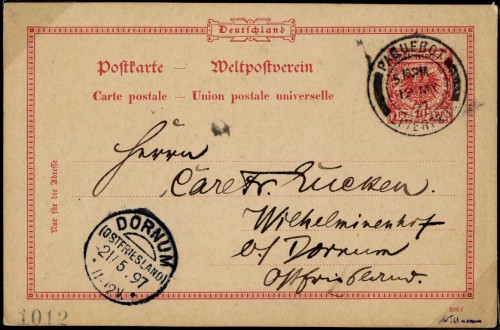 Deutschland
Postkarte – Weltpostverein
Carte postale – Union postale universelle
PAQUEBOT
Nur für die Adresse
Herrn
Lucken.
Wilhelminenhof
b/ Dornum
Ostfriesland.
DORNUM
(OSTFRIESLAND)
21/5.97
1012